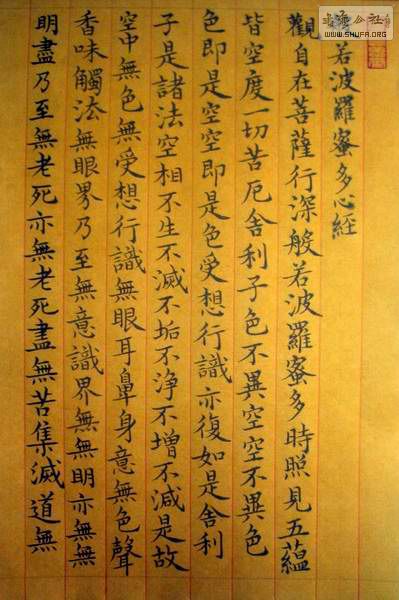 若波羅蜜多心經
觀自在菩薩行深般若波羅蜜多時照見五蘊
皆空度一切苦厄舍利子色不異空空不異色
色即是空空即是色受想行識亦復如是舍利
子是諸法空相不生不滅不垢不淨不增不減是故
空中無色無受想行識無眼耳鼻身意無色聲
香味觸法無眼界乃至無意識界無無明亦無無
明盡乃至無老死亦無老死盡無苦集滅道無
WWW.SHUFA.ORG